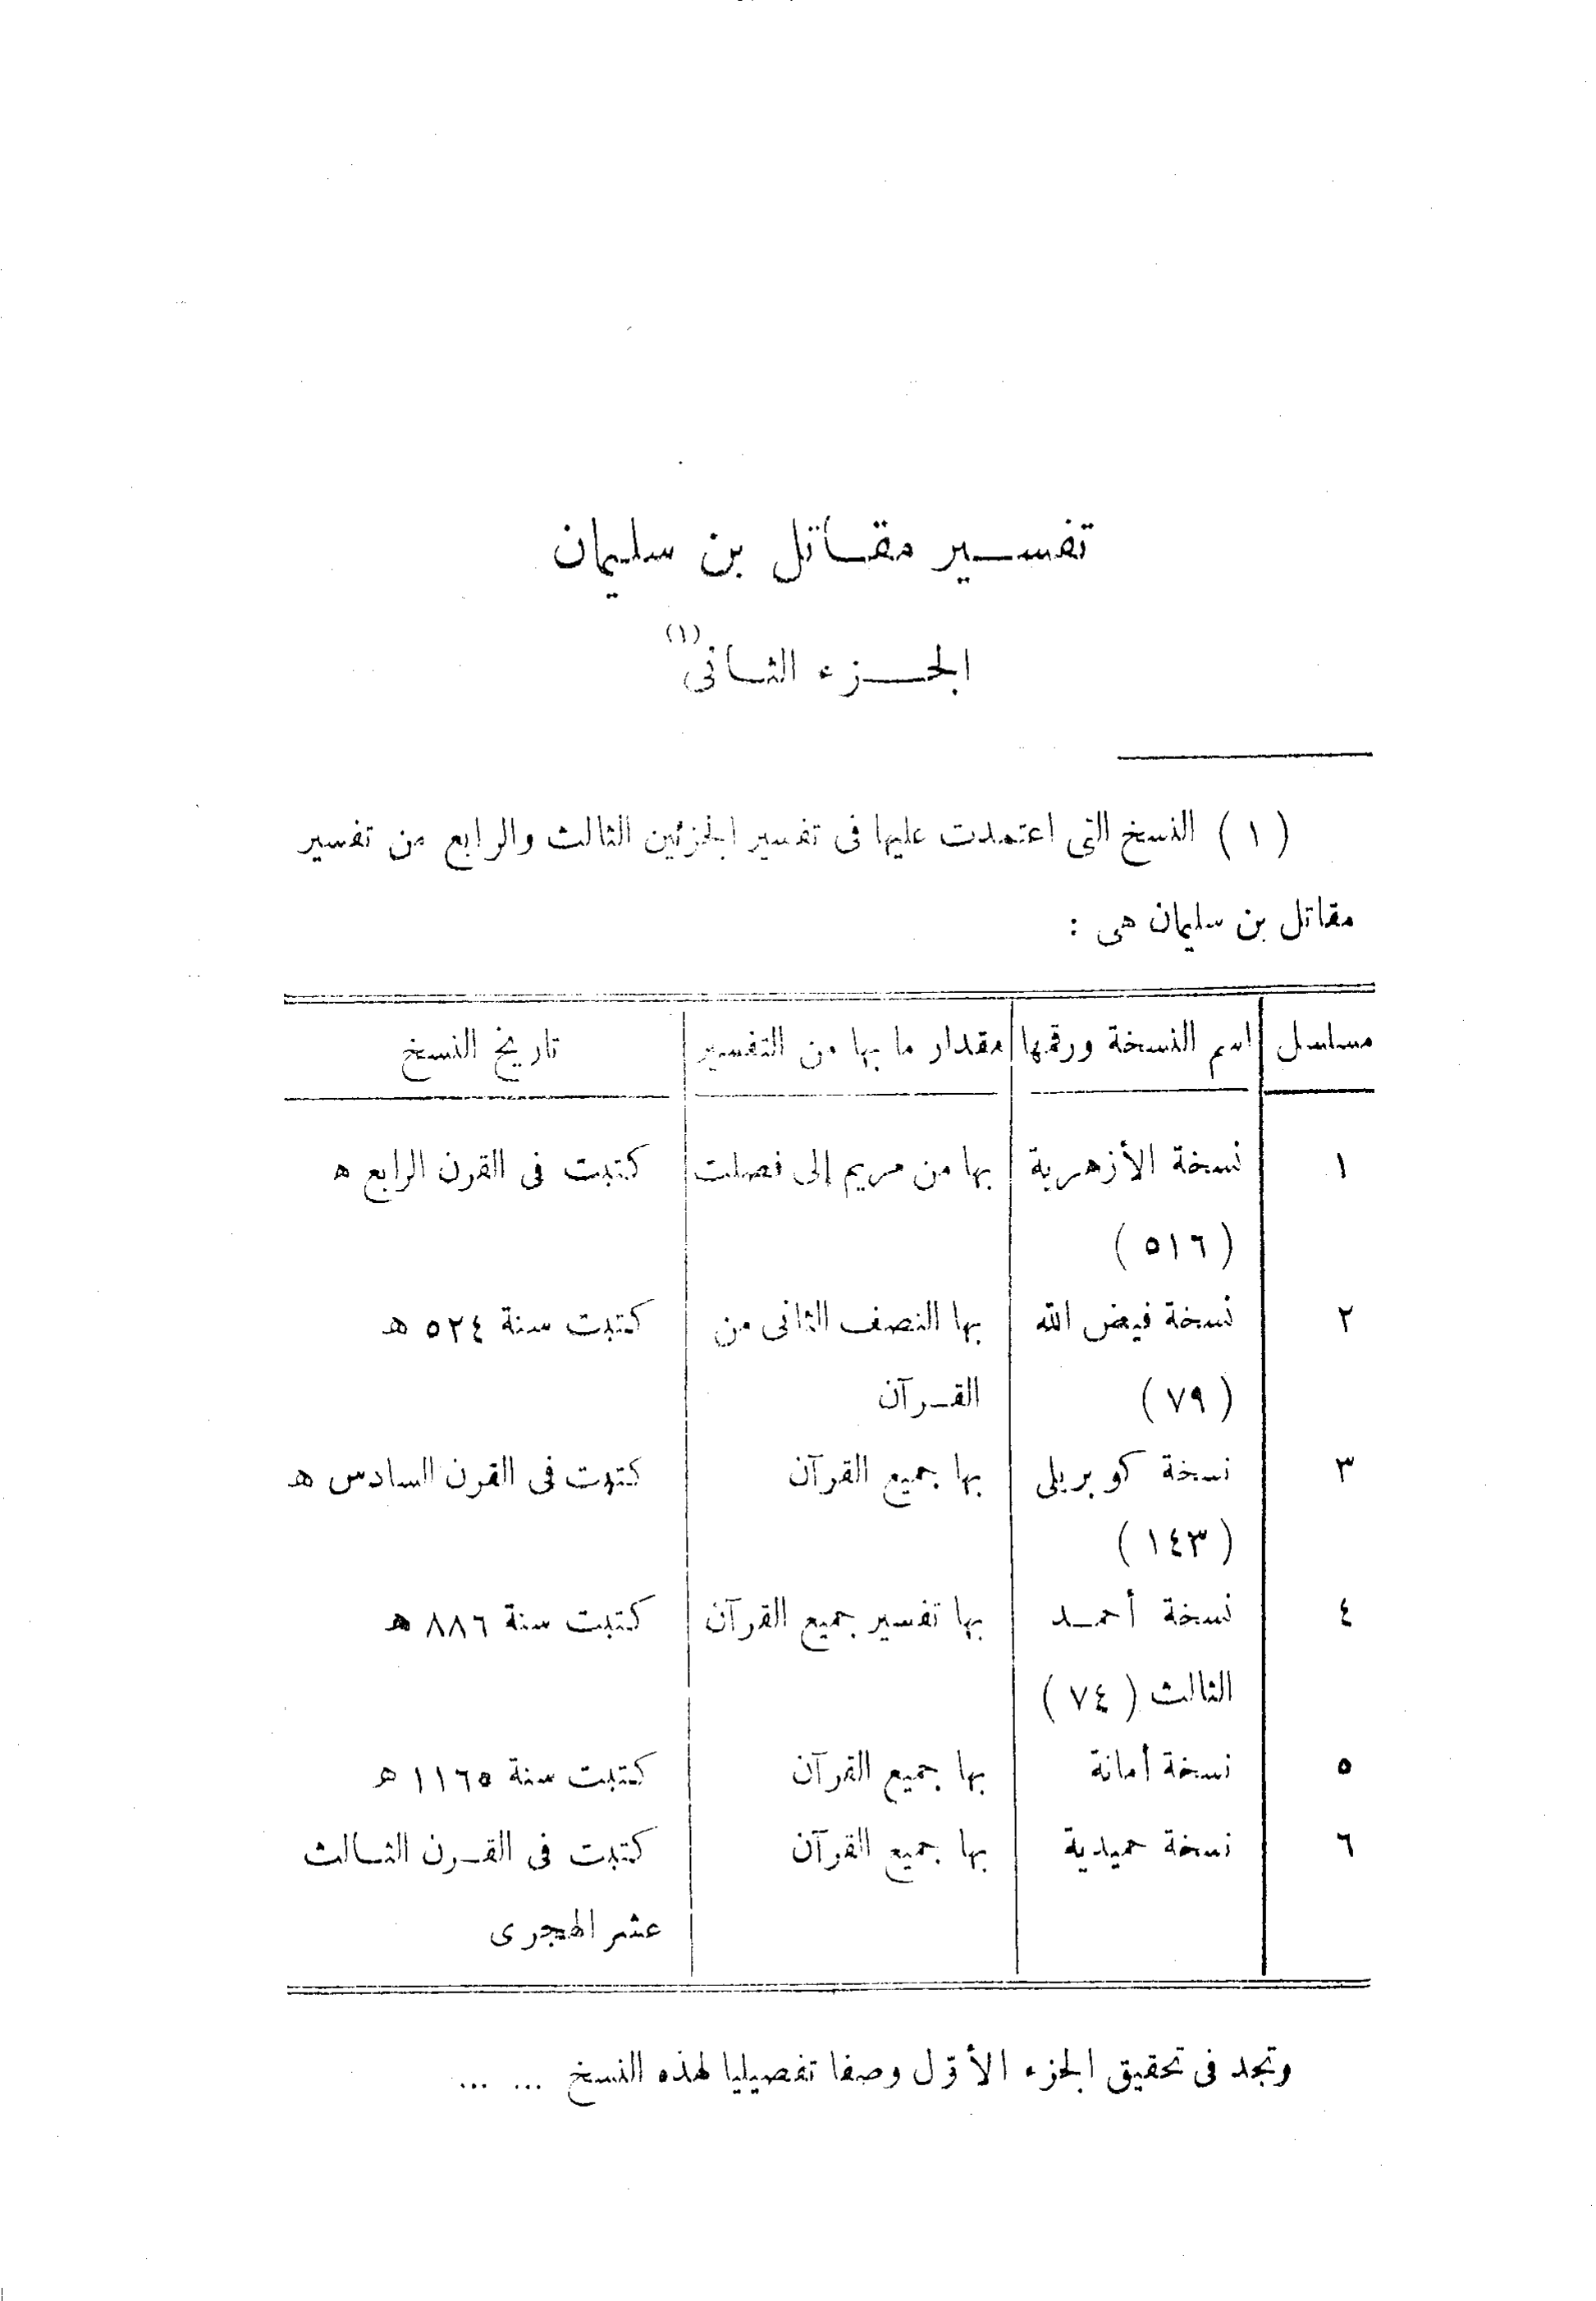 تفسير مقاتل بن سليمان
الجزء الثانى (١)
( ١ ) النسخ التى اعتمدت عليها فى تفسير الجزئين الثالث والرابع من تفسير
مقاتل بن سليمان هى :
مسلسل اسم النسخة ورقمها مقدار ما بها من التفسير تاريخ النسخ
١ نسخة الأزهرية بها من مريم إلى فصلت كتبت فى القرن الرابع ه
( ٥١٦ )
٢ نسخة فيض الله بها النصف الثانى من كتبت سنة ٥٢٤ ه
( ٧٩ ) القرآن
٣ نسخة كوبريلى بها جميع القرآن كتبت فى القرن السادس ه
( ١٤٣ )
٤ نسخة أحمد بها تفسير جميع القرآن كتبت سنة ٨٨٦ ه
الثالث ( ٧٤ )
٥ نسخة أمانة بها جميع القرآن كتبت سنة ١١٦٥ ه
٦ نسخة حميدية بها جميع القرآن كتبت فى القرن الثالث
عشر الهجرى
وتجد فى تحقيق الجزء الأوّل وصفا تفصيليا لهذه النسخ ... ...